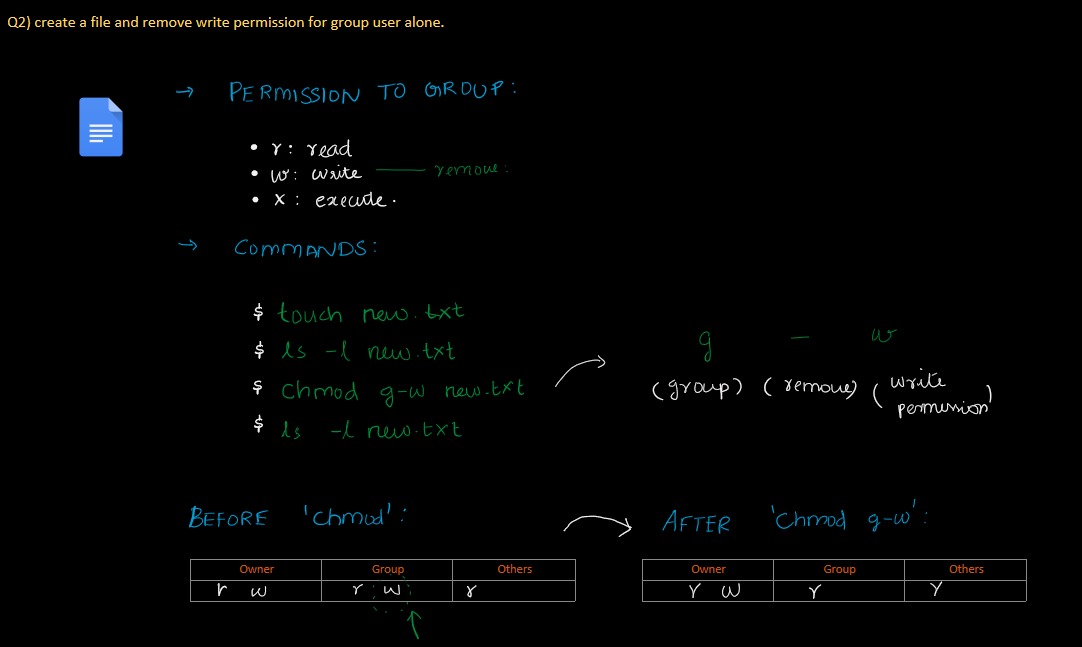 Q2) create a file and remove write permission for group user alone.
→ PERMISSION TO GROUP:
• r: read
• w: write —— remove:
• x: execute.
→ COMMANDS:
$ touch new.txt
$ ls -l new.txt
$ chmod g-w new.txt
$ ls -l new.txt
g - w
(group) (remove) (write permission)
BEFORE 'chmod':
Owner Group Others
r w r w r
AFTER 'chmod g-w':
Owner Group Others
r w r r